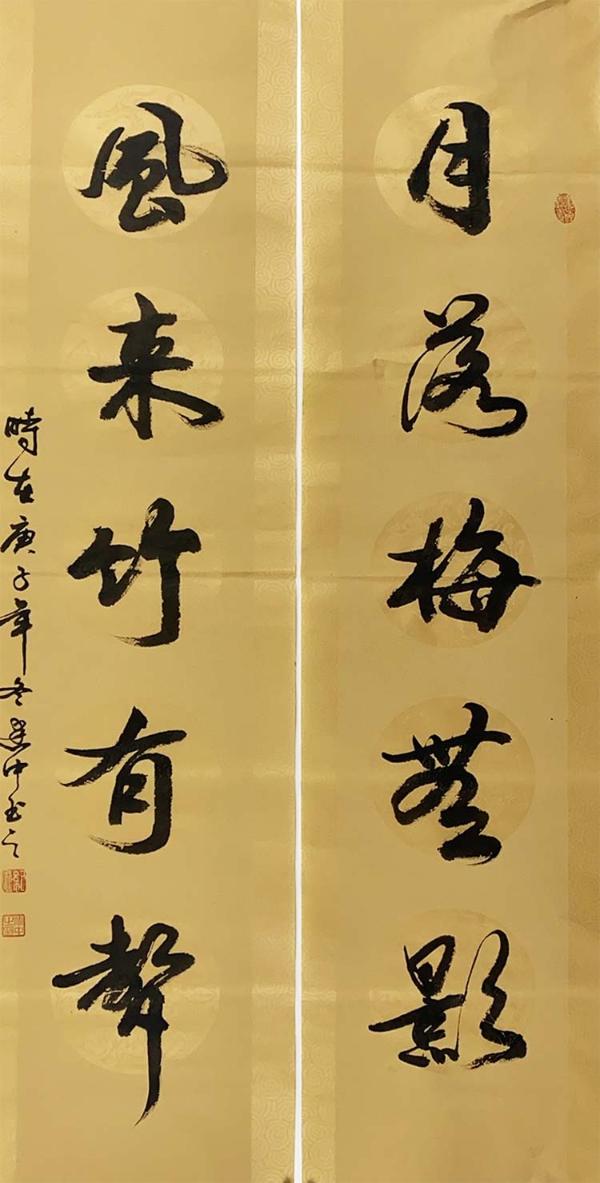 月落梅無影
風来竹有聲
時在庚子年冬
中书之